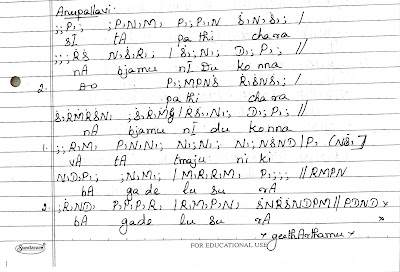 Anupallavi:
; ; P, ; ; P, N, M, P, ; P, , N Ṡ, N, Ṡ, ; /
sI tA pa thi cha ra
; ; ; Ṙ Ṡ N, Ṡ, Ṙ, ; / Ṡ, ; N, ; D, ; P, ; //
nA bjamu nI Du ko nna
2. P, ; M P N Ṡ Ṙ, N, Ṡ, ; /
pa thi cha ra
nA bjamu nI du ko nna
1. ; ; R, M, P, N, N, ; N, ; N, ; N, N S N D / P, (N Ṡ, )
vA tA tmaju ni ki
N, D, P, ; ; N, M, ; / M, R, R, M, P, ; ; ; // R M P N
bA ga de lu su rA
2. ; Ṙ, N D, P, P, P, R, / R, M, P, N, S N R S N D P M // P D N D x
bA gade lu su rA x
x geethArthamu x
Sundaram
FOR EDUCATIONAL USE